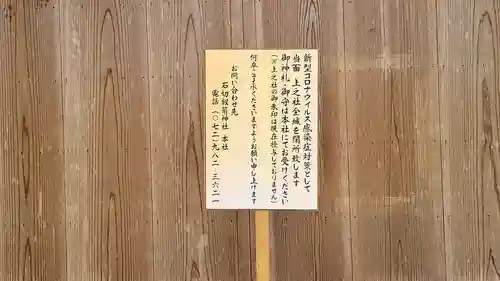 新型コロナウィルス感染症対策として
当面 上之社全域を閉所致します
御神札・御守は本社にてお受けください
(※上之社の御朱印は現在授与しておりません)
何卒ご了承くださいますようお願い申し上げます
お問い合わせ先
石切劔箭神社 本社
電話(〇七二)九八二-三六二一